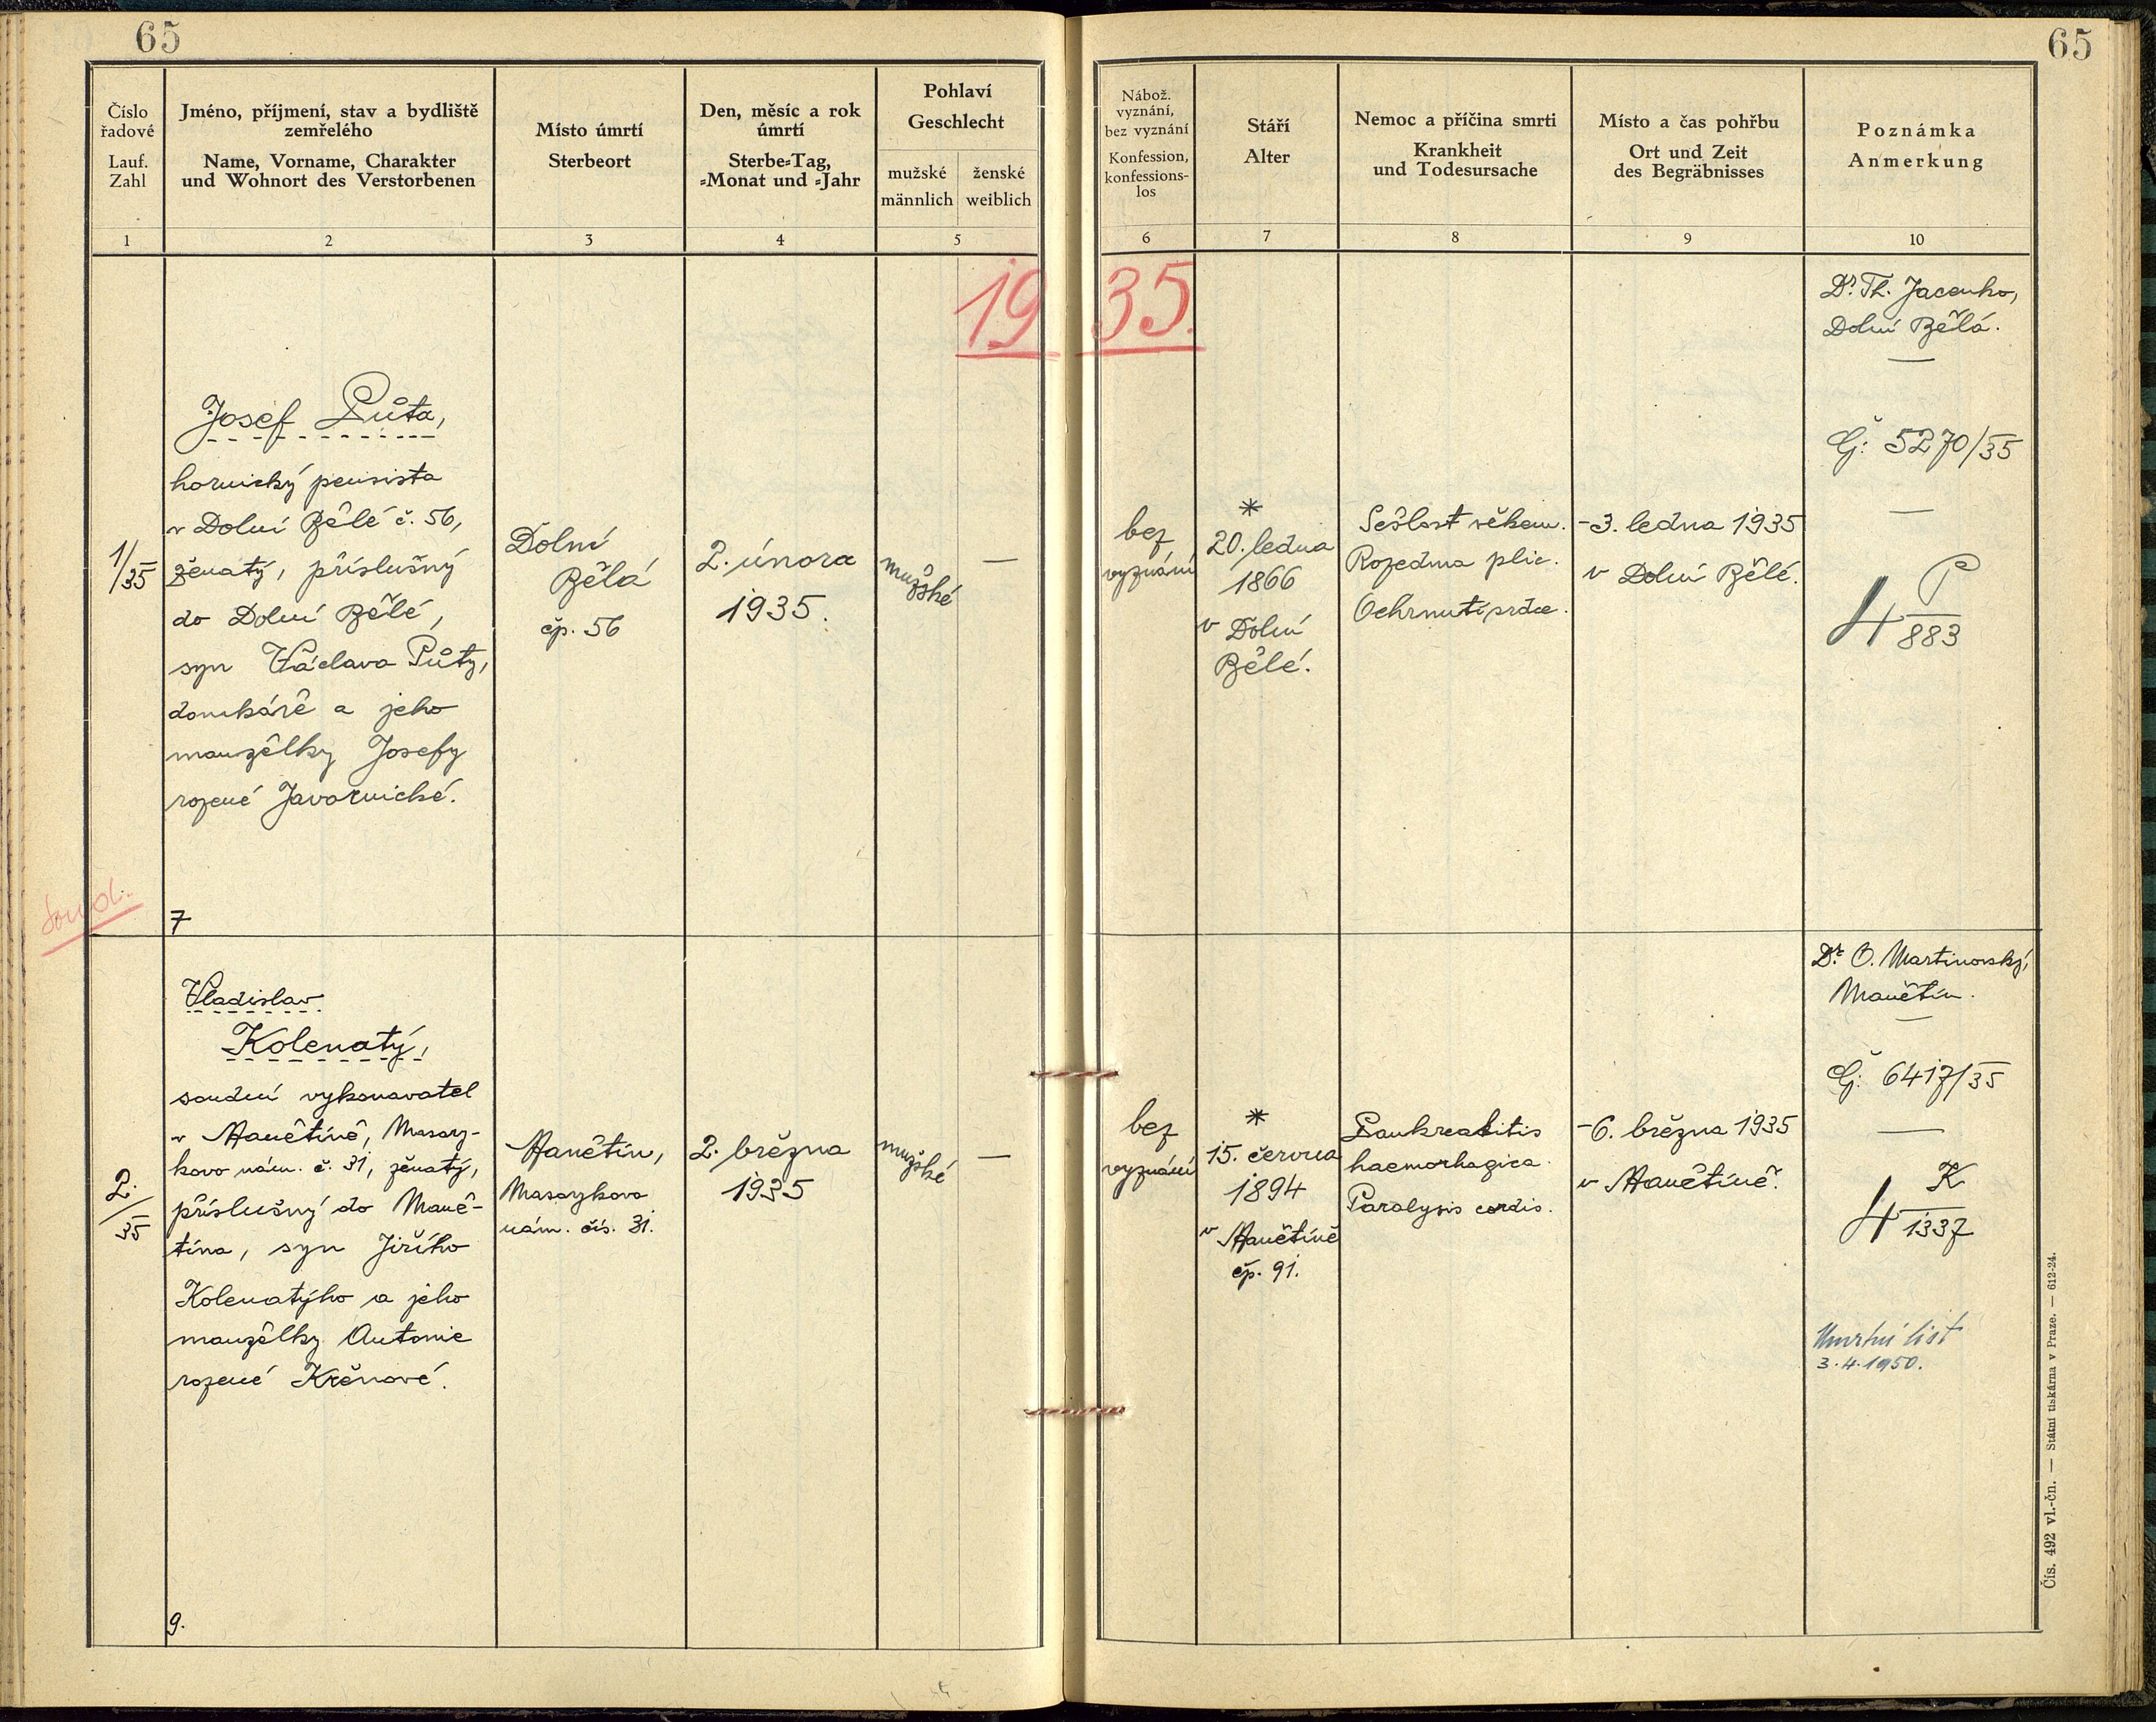 65
65
Číslo
řadové
Lauf.
Zahl
Jméno, příjmení, stav a bydliště
zemřelého
Name, Vorname, Charakter
und Wohnort des Verstorbenen
Místo úmrtí
Sterbeort
Den, měsíc a rok
úmrtí
Sterbe-Tag,
-Monat und -Jahr
Pohlaví
Geschlecht
mužské
männlich
ženské
weiblich
Nábož.
vyznání,
bez vyznání
Konfession,
konfessions-
los
Stáří
Alter
Nemoc a příčina smrti
Krankheit
und Todesursache
Místo a čas pohřbu
Ort und Zeit
des Begräbnisses
Poznámka
Anmerkung
1
2
3
4
5
6
7
8
9
10
1935.
1/35
Josef Půta,
hornický pensista
v Dolní Bělé č. 56,
ženatý, příslušný
do Dolní Bělé,
syn Václava Půty,
domkáře a jeho
manželky Josefy
rozené Javornické.
7
Dolní
Bělá
čp. 56
2. února
1935.
mužské
—
bez
vyznání
*
20. ledna
1866
v Dolní
Bělé.
Sešlost věkem.
Rozedma plic.
Ochrnutí srdce.
-3. ledna 1935
v Dolní Bělé.
Dr. Th. Jacenko,
Dolní Bělá.
—
Čj: 5270/35
—
4 P/883
2./35
Vladislav
Kolenatý,
soudní vykonavatel
v Manětíně, Masary-
kovo nám. č. 31, ženatý,
příslušný do Maně-
tína, syn Jiřího
Kolenatýho a jeho
manželky Antonie
rozené Křenové.
9.
Manětín,
Masarykovo
nám. čís. 31.
2. března
1935
mužské
—
bez
vyznání
*
15. června
1894
v Manětíně
čp. 91.
Pankreatitis
haemorhagica.
Paralysis cordis.
-6. března 1935
v Manětíně.
Dr. O. Martinovský,
Manětín.
—
Čj: 6417/35
—
4 K/1337
Úmrtní list
3.4.1950.
Čís. 492 vl.-čn. — Státní tiskárna v Praze. — 612-24.